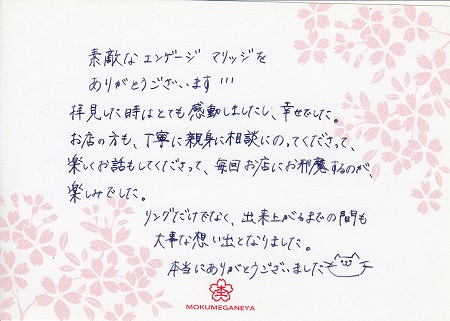 素敵なエンゲージ マリッジを
ありがとうございます!!!
拝見した時はとても感動しましたし、幸せでした。
お店の方も、丁寧に親身に相談にのってくださって、
楽しくお話もしてくださって、毎回お店にお邪魔するのが、
楽しみでした。
リングだけでなく、出来上がるまでの間も
大事な想い出となりました。
本当にありがとうございました
MOKUMEGANEYA